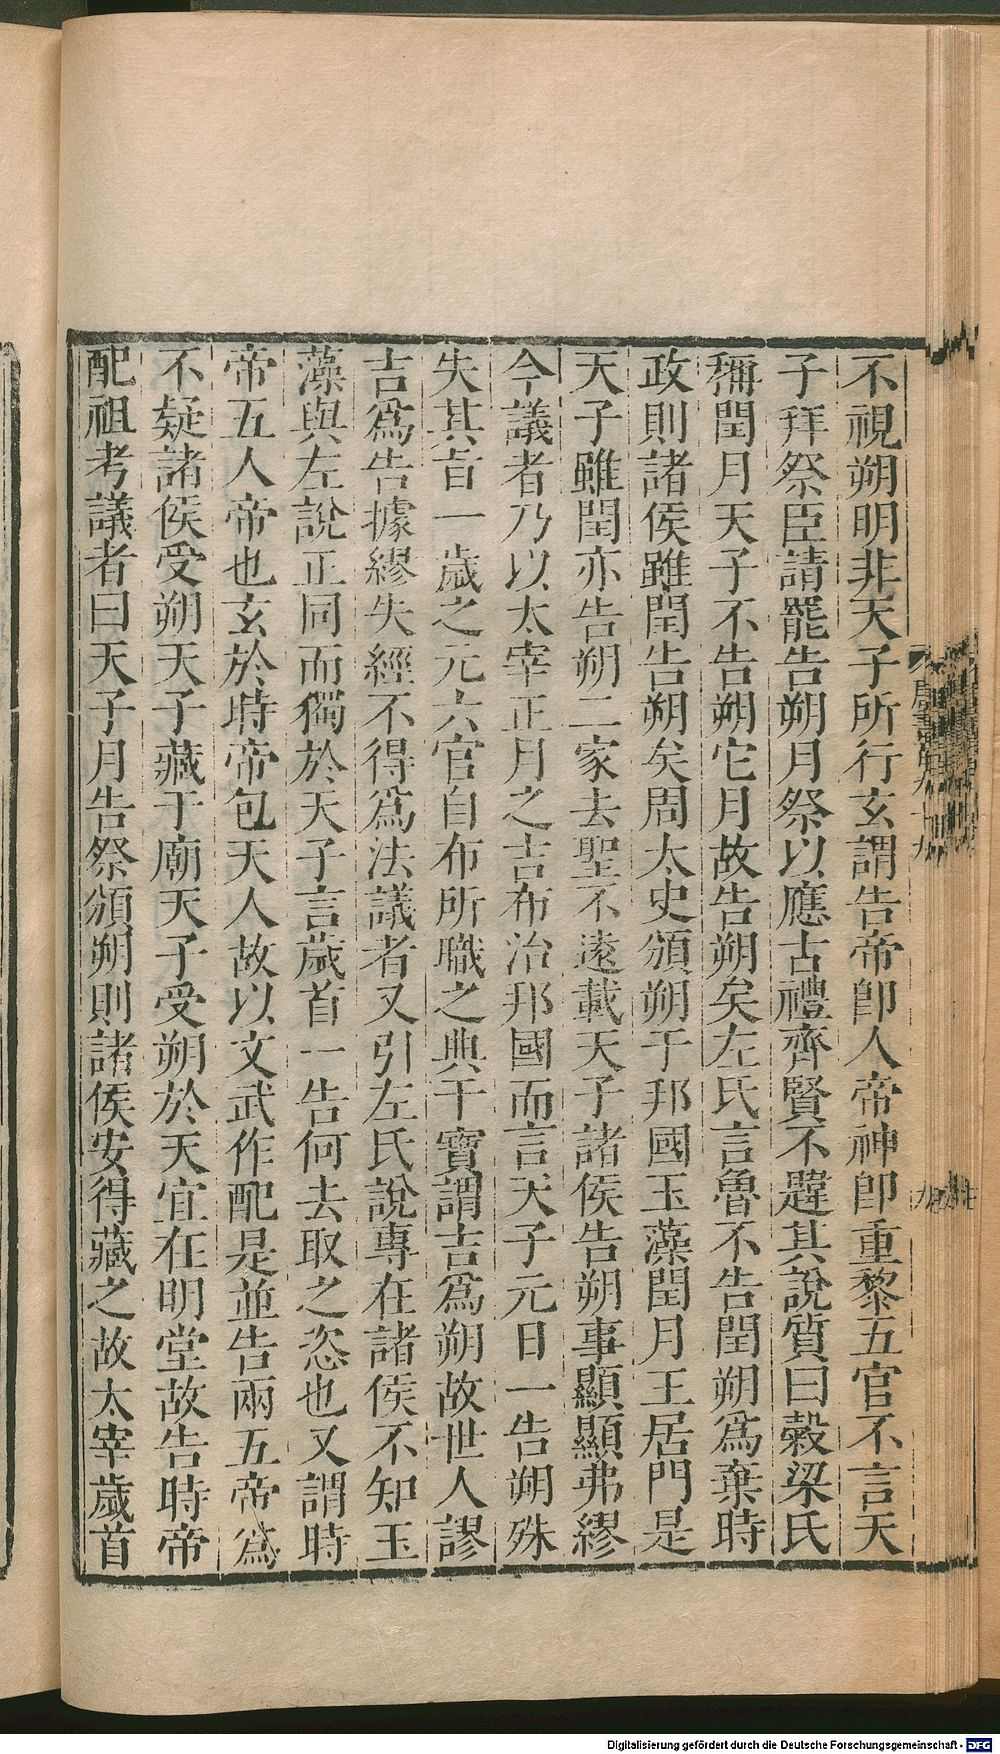 不視朔明非天子所行玄謂告帝卽人帝神卽重黎五官不言天
子拜祭臣請罷告朔月祭以應古禮齊賢不韙其說質曰穀梁氏
稱閏月天子不告朔它月故告朔矣左氏言魯不告閏朔爲棄時
政則諸侯雖閏告朔矣周太史頒朔于邦國玉藻閏月王居門是
天子雖閏亦告朔二家去聖不遠載天子諸侯告朔事顯顯弗繆
今議者乃以太宰正月之吉布治邦國而言天子元日一告朔殊
失其旨一歲之元六官自布所職之典干寶謂吉爲朔故世人謬
吉爲告據繆失經不得爲法議者又引左氏說專在諸侯不知玉
藻與左說正同而獨於天子言歲首一告何去取之恣也又謂時
帝五人帝也玄於時帝包天人故以文武作配是並告兩五帝爲
不疑諸侯受朔天子藏于廟天子受朔於天宜在明堂故告時帝
配祖考議者曰天子月告祭頒朔則諸侯安得藏之故太宰歲首
Digitalisierung gefördert durch die Deutsche Forschungsgemeinschaft - DFG